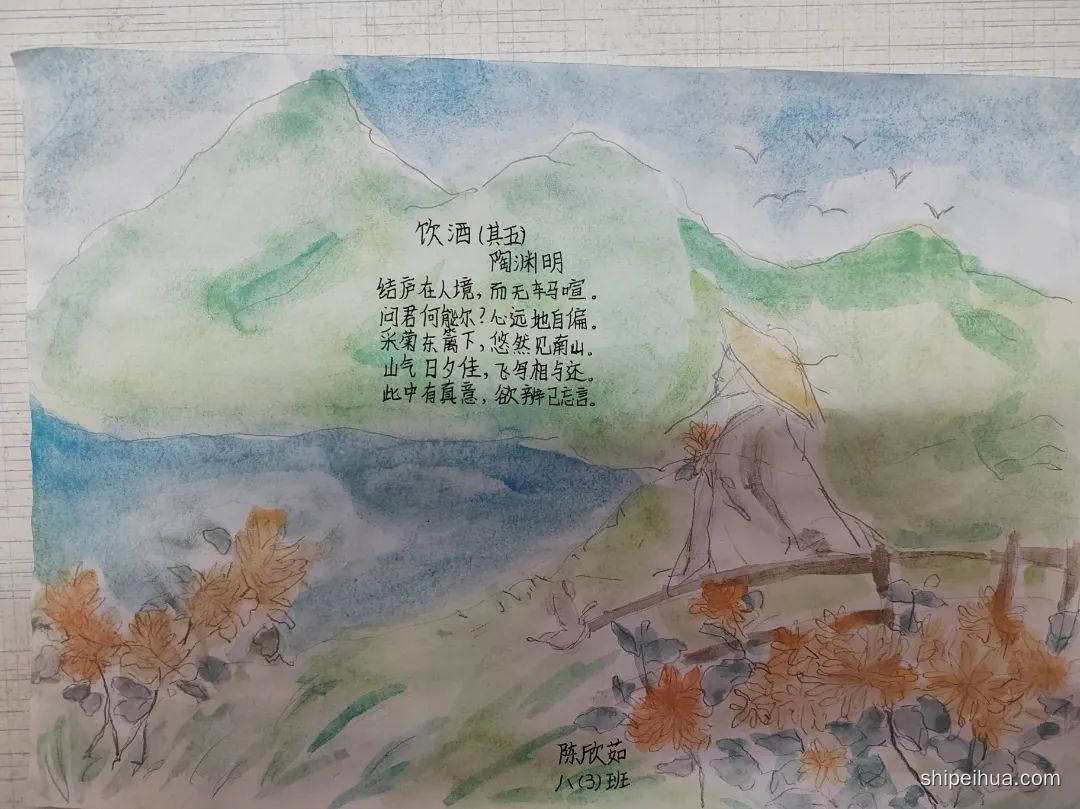 饮酒(其五)
陶渊明
结庐在人境，而无车马喧。
问君何能尔？心远地自偏。
采菊东篱下，悠然见南山。
山气日夕佳，飞鸟相与还。
此中有真意，欲辨已忘言。
陈欣茹
八(3)班
shipeihua.com